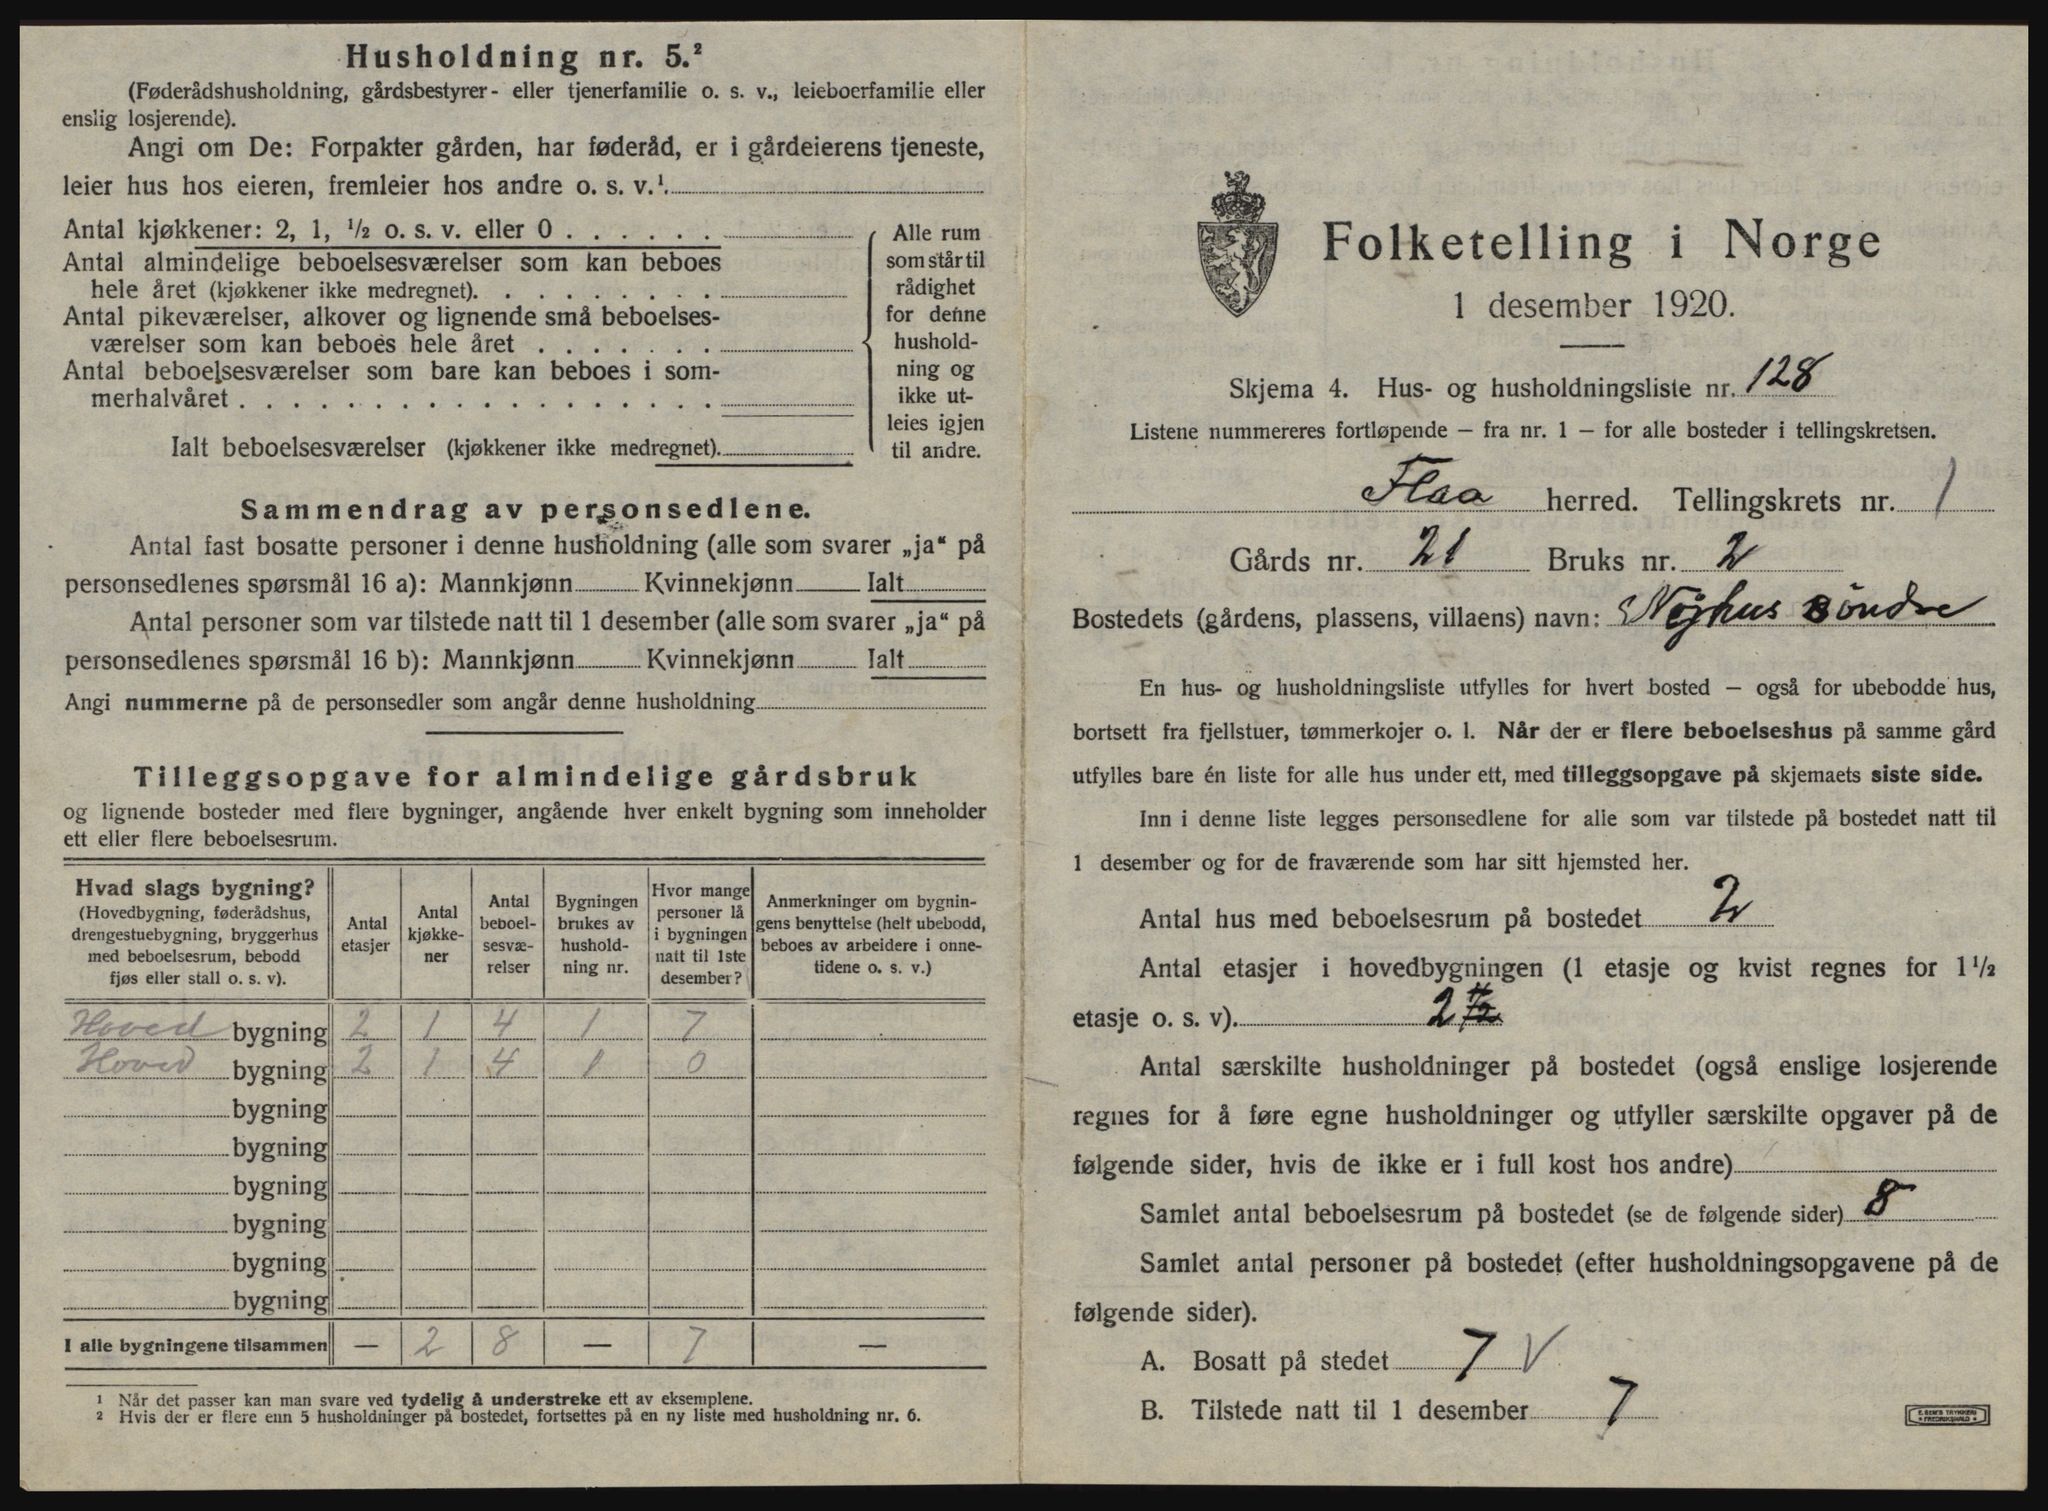 Husholdning nr. 5.²
(Føderådshusholdning, gårdsbestyrer- eller tjenerfamilie o. s. v., leieboerfamilie eller
enslig losjerende).
Angi om De: Forpakter gården, har føderåd, er i gårdeierens tjeneste,
leier hus hos eieren, fremleier hos andre o. s. v.¹
Antal kjøkkener: 2, 1, ½ o. s. v. eller 0
Antal almindelige beboelsesværelser som kan beboes
hele året (kjøkkener ikke medregnet).
Antal pikeværelser, alkover og lignende små beboelses-
værelser som kan beboes hele året
Antal beboelsesværelser som bare kan beboes i som-
merhalvåret
Ialt beboelsesværelser (kjøkkener ikke medregnet).
Alle rum
som står til
rådighet
for denne
hushold-
ning og
ikke ut-
leies igjen
til andre.
Sammendrag av personsedlene.
Antal fast bosatte personer i denne husholdning (alle som svarer „ja“ på
personsedlenes spørsmål 16 a): Mannkjønn Kvinnekjønn Ialt
Antal personer som var tilstede natt til 1 desember (alle som svarer „ja“ på
personsedlenes spørsmål 16 b): Mannkjønn Kvinnekjønn Ialt
Angi nummerne på de personsedler som angår denne husholdning
Tilleggsopgave for almindelige gårdsbruk
og lignende bosteder med flere bygninger, angående hver enkelt bygning som inneholder
ett eller flere beboelsesrum.
Hvad slags bygning?
(Hovedbygning, føderådshus,
drengestuebygning, bryggerhus
med beboelsesrum, bebodd
fjøs eller stall o. s. v).
Antal
etasjer
Antal
kjøkke-
ner
Antal
beboel-
sesvæ-
relser
Bygningen
brukes av
hushold-
ning nr.
Hvor mange
personer lå
i bygningen
natt til 1ste
desember?
Anmerkninger om bygnin-
gens benyttelse (helt ubebodd,
beboes av arbeidere i onne-
tidene o. s. v.)
Hoved bygning 2 1 4 1 7
Hoved bygning 2 1 4 1 0
bygning
bygning
bygning
bygning
bygning
bygning
I alle bygningene tilsammen — 2 8 — 7 —
¹ Når det passer kan man svare ved tydelig å understreke ett av eksemplene.
² Hvis der er flere enn 5 husholdninger på bostedet, fortsettes på en ny liste med husholdning nr. 6.
Folketelling i Norge
1 desember 1920.
Skjema 4. Hus- og husholdningsliste nr. 128
Listene nummereres fortløpende – fra nr. 1 – for alle bosteder i tellingskretsen.
Flaa herred. Tellingskrets nr. 1
Gårds nr. 21 Bruks nr. 2
Bostedets (gårdens, plassens, villaens) navn: Nøjhus Söndre
En hus- og husholdningsliste utfylles for hvert bosted – også for ubebodde hus,
bortsett fra fjellstuer, tømmerkojer o. l. Når der er flere beboelseshus på samme gård
utfylles bare én liste for alle hus under ett, med tilleggsopgave på skjemaets siste side.
Inn i denne liste legges personsedlene for alle som var tilstede på bostedet natt til
1 desember og for de fraværende som har sitt hjemsted her.
Antal hus med beboelsesrum på bostedet 2
Antal etasjer i hovedbygningen (1 etasje og kvist regnes for 1½
etasje o. s. v). 2
Antal særskilte husholdninger på bostedet (også enslige losjerende
regnes for å føre egne husholdninger og utfyller særskilte opgaver på de
følgende sider, hvis de ikke er i full kost hos andre)
Samlet antal beboelsesrum på bostedet (se de følgende sider) 8
Samlet antal personer på bostedet (efter husholdningsopgavene på de
følgende sider).
A. Bosatt på stedet 7 V
B. Tilstede natt til 1 desember 7
E. SEM'S TRYKKERI
FREDRIKSHALD